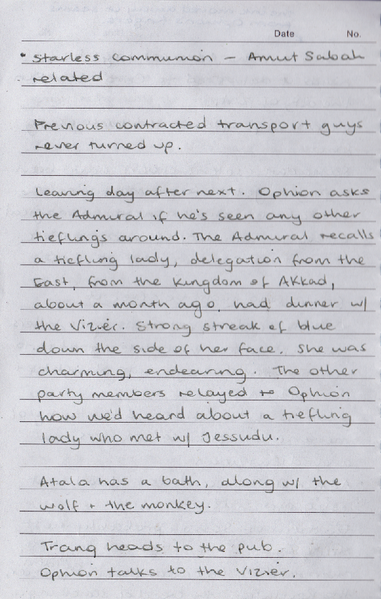 Date No.
• Starless Communion – Amut Sabah
related
Previous contracted transport guys
never turned up.
Leaving day after next. Ophion asks
the Admiral if he's seen any other
tieflings around. The Admiral recalls
a tiefling lady, delegation from the
East, from the Kingdom of Akkad,
about a month ago, had dinner w/
the Vizier. Strong streak of blue
down the side of her face. She was
charming, endearing. The other
party members relayed to Ophion
how we'd heard about a tiefling
lady who met w/ Jessudu.
Atala has a bath, along w/ the
wolf + the monkey.
Trang heads to the pub.
Ophion talks to the Vizier.